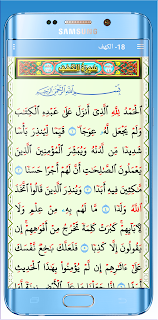 SAMSUNG
18- الكهف
سُورَةُ الكَهْفِ
بِسْمِ ٱللَّهِ ٱلرَّحْمَـٰنِ ٱلرَّحِيمِ
ٱلْحَمْدُ لِلَّهِ ٱلَّذِىٓ أَنزَلَ عَلَىٰ عَبْدِهِ ٱلْكِتَـٰبَ
وَلَمْ يَجْعَل لَّهُۥ عِوَجَا ۜ ١ قَيِّمًا لِّيُنذِرَ بَأْسًا
شَدِيدًا مِّن لَّدُنْهُ وَيُبَشِّرَ ٱلْمُؤْمِنِينَ ٱلَّذِينَ
يَعْمَلُونَ ٱلصَّـٰلِحَـٰتِ أَنَّ لَهُمْ أَجْرًا حَسَنًا ٢
مَّـٰكِثِينَ فِيهِ أَبَدًا ٣ وَيُنذِرَ ٱلَّذِينَ قَالُوا۟ ٱتَّخَذَ
ٱللَّهُ وَلَدًا ٤ مَّا لَهُم بِهِۦ مِنْ عِلْمٍ وَلَا
لِـَٔابَآئِهِمْ كَبُرَتْ كَلِمَةً تَخْرُجُ مِنْ أَفْوَٰهِهِمْ إِن
يَقُولُونَ إِلَّا كَذِبًا ٥ فَلَعَلَّكَ بَـٰخِعٌ نَّفْسَكَ
عَلَىٰٓ ءَاثَـٰرِهِمْ إِن لَّمْ يُؤْمِنُوا۟ بِهَـٰذَا ٱلْحَدِيثِ